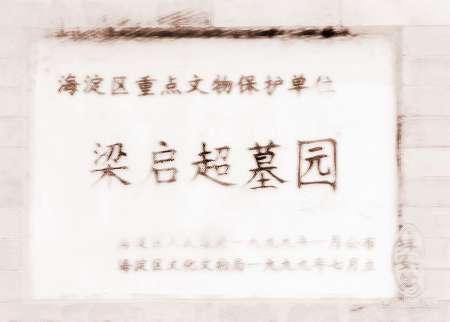 海淀区重点文物保护单位
梁启超墓园
海淀区人民政府一九九九年一月公布
海淀区文化文物局一九九九年七月立